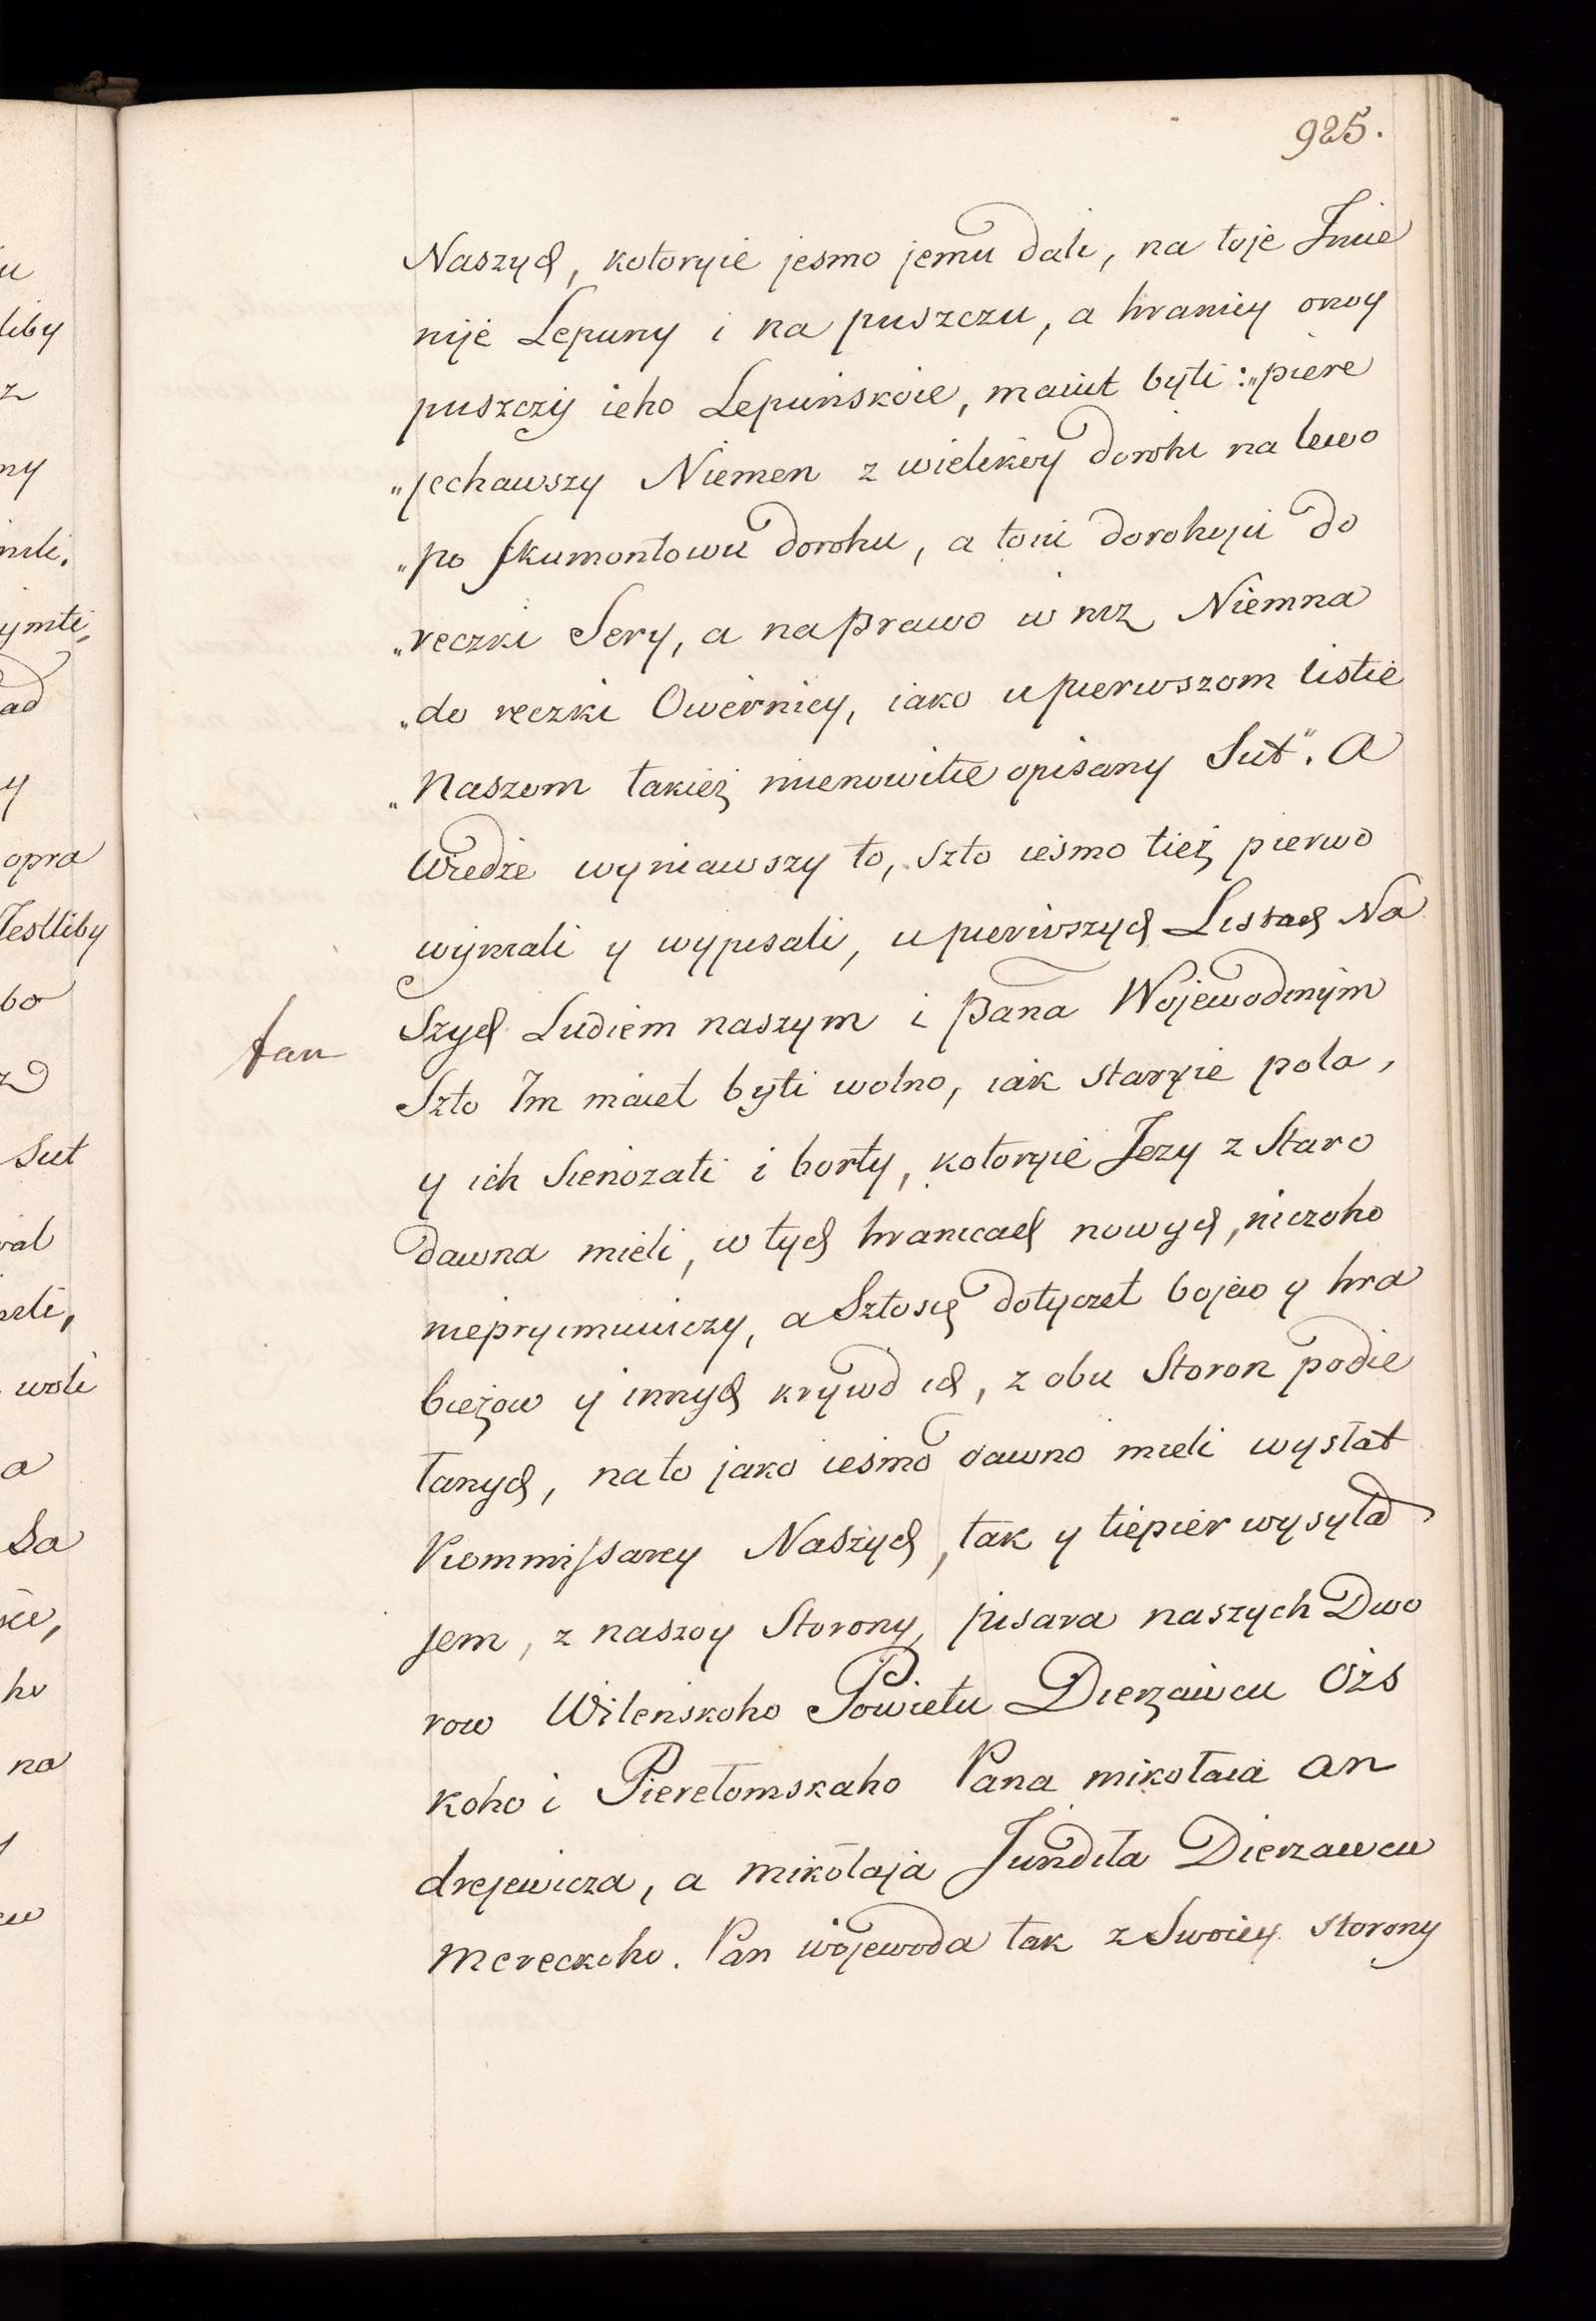 925.
Naszych, kotoryie jesmo jemu dali, na toje Jmie
nije Lepuny i na puszczu, a hranicy onoy
puszczy ieho Lepuńskoie, maiut byti: „piere
„jechawszy Niemen z wielikoy dorohi na lewo
„po Skumontowu dorohu, a toiu dorohoju do
„reczki Sery, a na prawo w niz Niemna
„do reczki Owernicy, iako u pierwszom listie
„Naszom takież mienowitie opisany Sut". A
Wiedże wyniawszy to, szto iesmo tież pierwo
wymali y wypisali, u pierwszych Listach Na
szych Ludiem naszym i Pana Wojewodinym
Szto Im maiet byti wolno, iak staryie pola,
fan
y ich Sienożati i borty, kotoryie Jezy z Staro
dawna mieli, w tych hranicach nowych, niczoho
niepryimuiuczy, a Sztosię dotyczet bojew y hra
bieżow y innych krywd ich, z obu Storon podie
łanych, na to jako iesmo dawno mieli wysłat
Kommissarey Naszych, tak y tiepier wysyła
jem, z naszoy Storony, pisara naszych Dwo
row Wilenskoho Powietu Dierżawcu Ożs
koho i Pierełomskaho Pana mikołaia An
drejewicza, a Mikołaja Jundiła Dierzawcu
Mereckoho. Pan wojewoda tak z Swoiey storony
liby
opra
Jestliby
bo
Sut
woli
a
Sa
ho
na